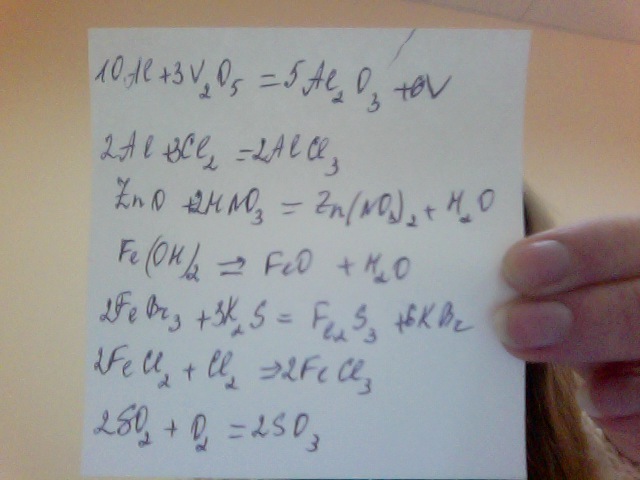 10Al+3V₂O₅ =5Al₂O₃ +6V
2Al+3Cl₂ =2AlCl₃
ZnO +2HNO₃ = Zn(NO₃)₂ + H₂O
Fe(OH)₂ => FeO + H₂O
2FeBr₃ +3K₂S = Fe₂S₃ +6KBr
2FeCl₂ + Cl₂ =>2FeCl₃
2SO₂ + O₂ =2SO₃